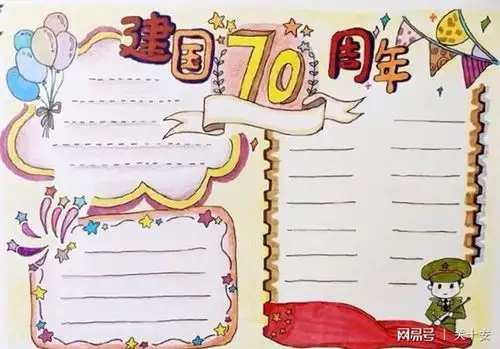 建国70周年
网易号 | 关十安